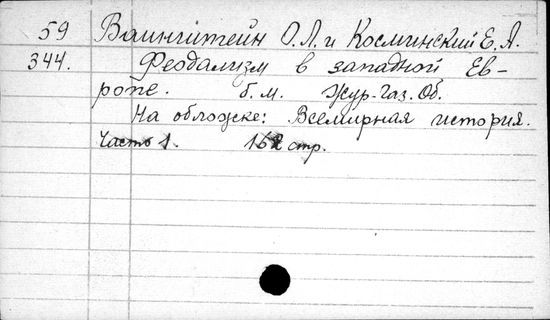 59 Ваинштейн О.Л. и Косминский Е.А.
344. Феодализм в западной Ев-
ропе. б.м. Жур.-Газ. Об.
На обложке: Всемирная история.
Часть 1. 162 стр.